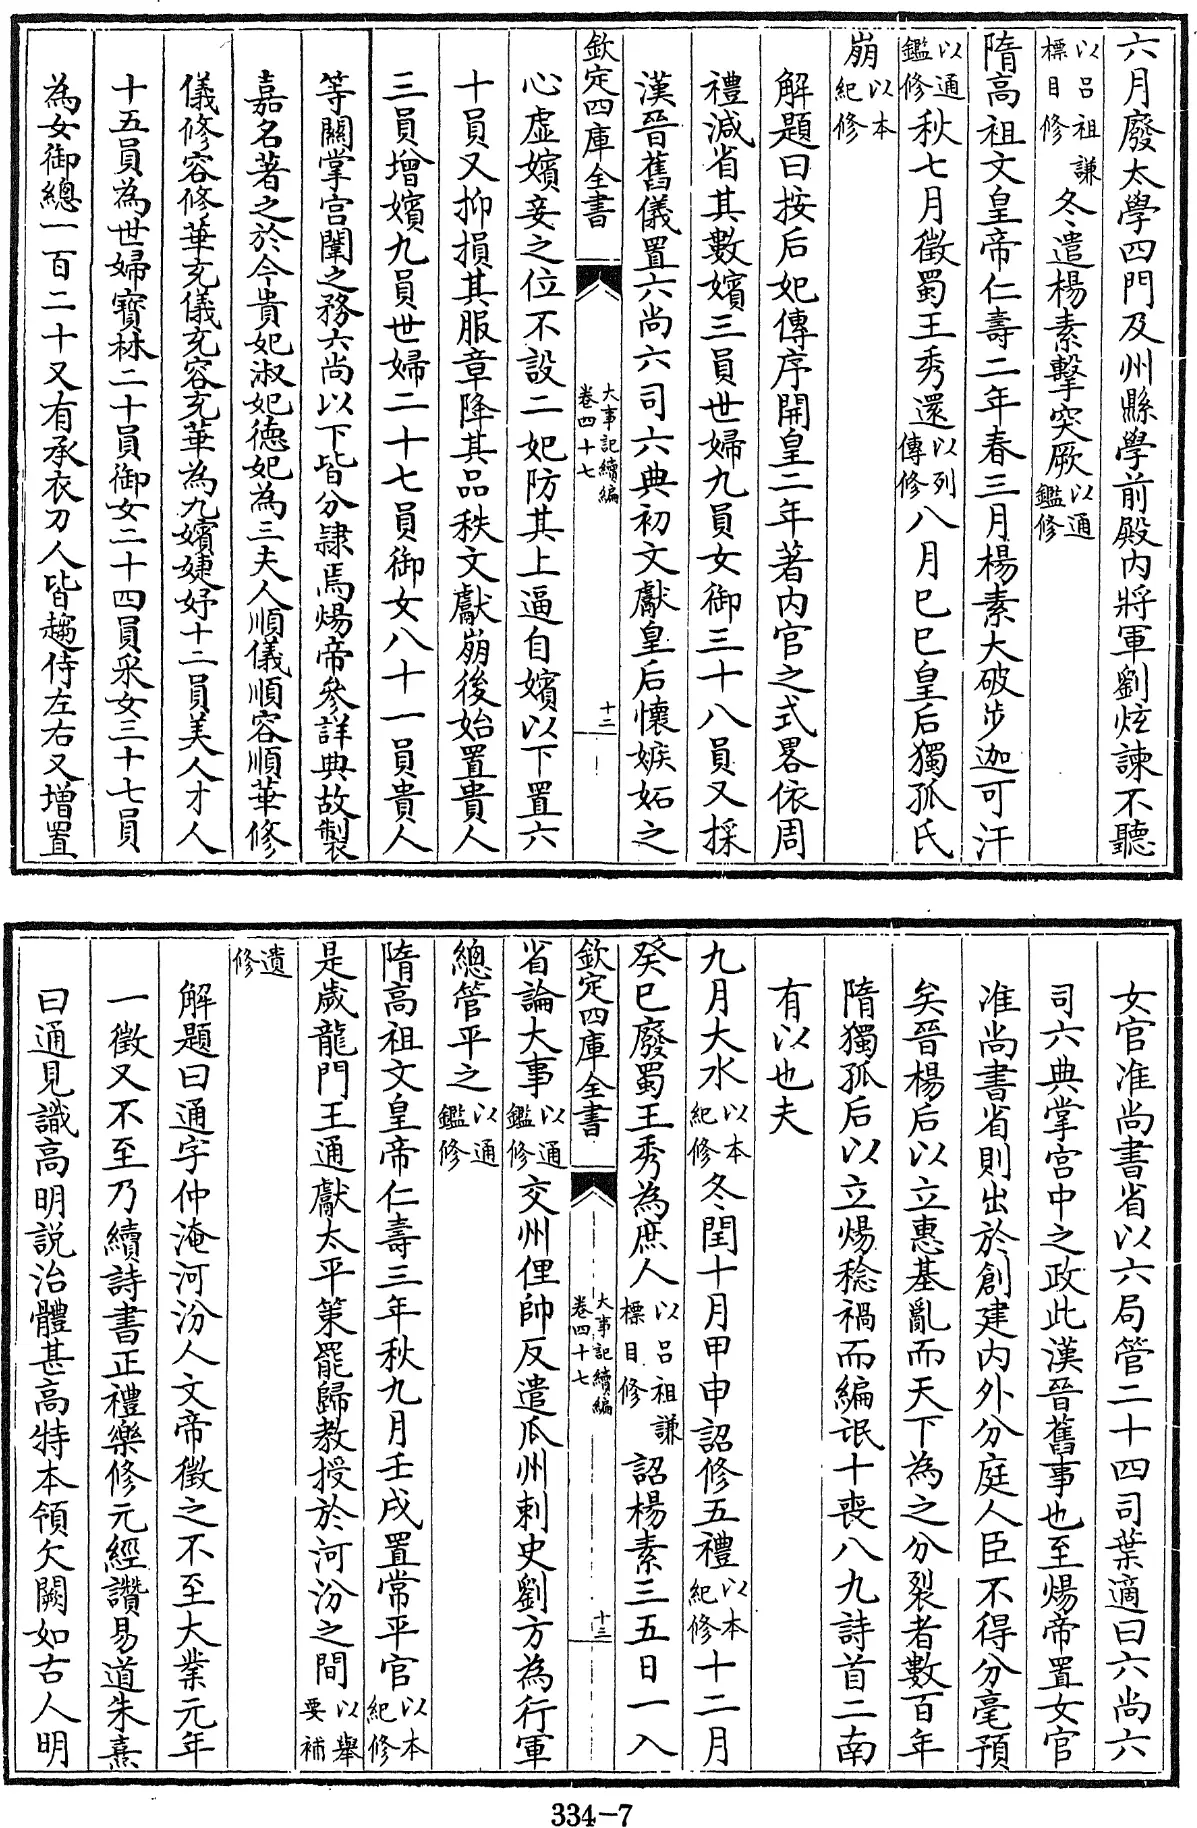 六月廢太學四門及州縣學前殿内將軍劉炫諫不聽
以吕祖謙標目修冬遣楊素擊突厥以通鑑修
隋高祖文皇帝仁壽二年春三月楊素大破步迦可汗
以通鑑修秋七月徵蜀王秀還以列傳修八月己巳皇后獨孤氏
崩以本紀修
解題曰按后妃傳序開皇二年著内官之式畧依周
禮減省其數嬪三員世婦九員女御三十八員又採
漢晉舊儀置六尚六司六典初文獻皇后懷嫉妬之
欽定四庫全書
大事記續編
卷四十七
十二
心虚嬪妾之位不設二妃防其上逼自嬪以下置六
十員又抑損其服章降其品秩文獻崩後始置貴人
三員增嬪九員世婦二十七員御女八十一員貴人
等關掌宫闈之務六尚以下皆分隷焉煬帝參詳典故製
嘉名著之於令貴妃淑妃德妃為三夫人順儀順容順華修
儀修容修華充儀充容充華為九嬪婕妤十二員美人才人
十五員為世婦寳林二十員御女二十四員采女三十七員
為女御總一百二十又有承衣刀人皆趨侍左右又增置
女官准尚書省以六局管二十四司葉適曰六尚六
司六典掌宫中之政此漢晉舊事也至煬帝置女官
准尚書省則出於創建内外分庭人臣不得分毫預
矣晉楊后以立惠基亂而天下為之分裂者數百年
隋獨孤后以立煬稔禍而編氓十喪八九詩首二南
有以也夫
九月大水以本紀修冬閏十月甲申詔修五禮以本紀修十二月
癸巳廢蜀王秀為庶人以吕祖謙標目修詔楊素三五日一入
欽定四庫全書
大事記續編
卷四十七
十三
省論大事以通鑑修交州俚帥反遣瓜州剌史劉方為行軍
總管平之以通鑑修
隋高祖文皇帝仁壽三年秋九月壬戌置常平官以本紀修
是歲龍門王通獻太平策罷歸教授於河汾之間以舉要補
遺修
解題曰通字仲淹河汾人文帝徵之不至大業元年
一徵又不至乃續詩書正禮樂修元經讚易道朱熹
曰通見識高明説治體甚高特本領欠闕如古人明
334-7